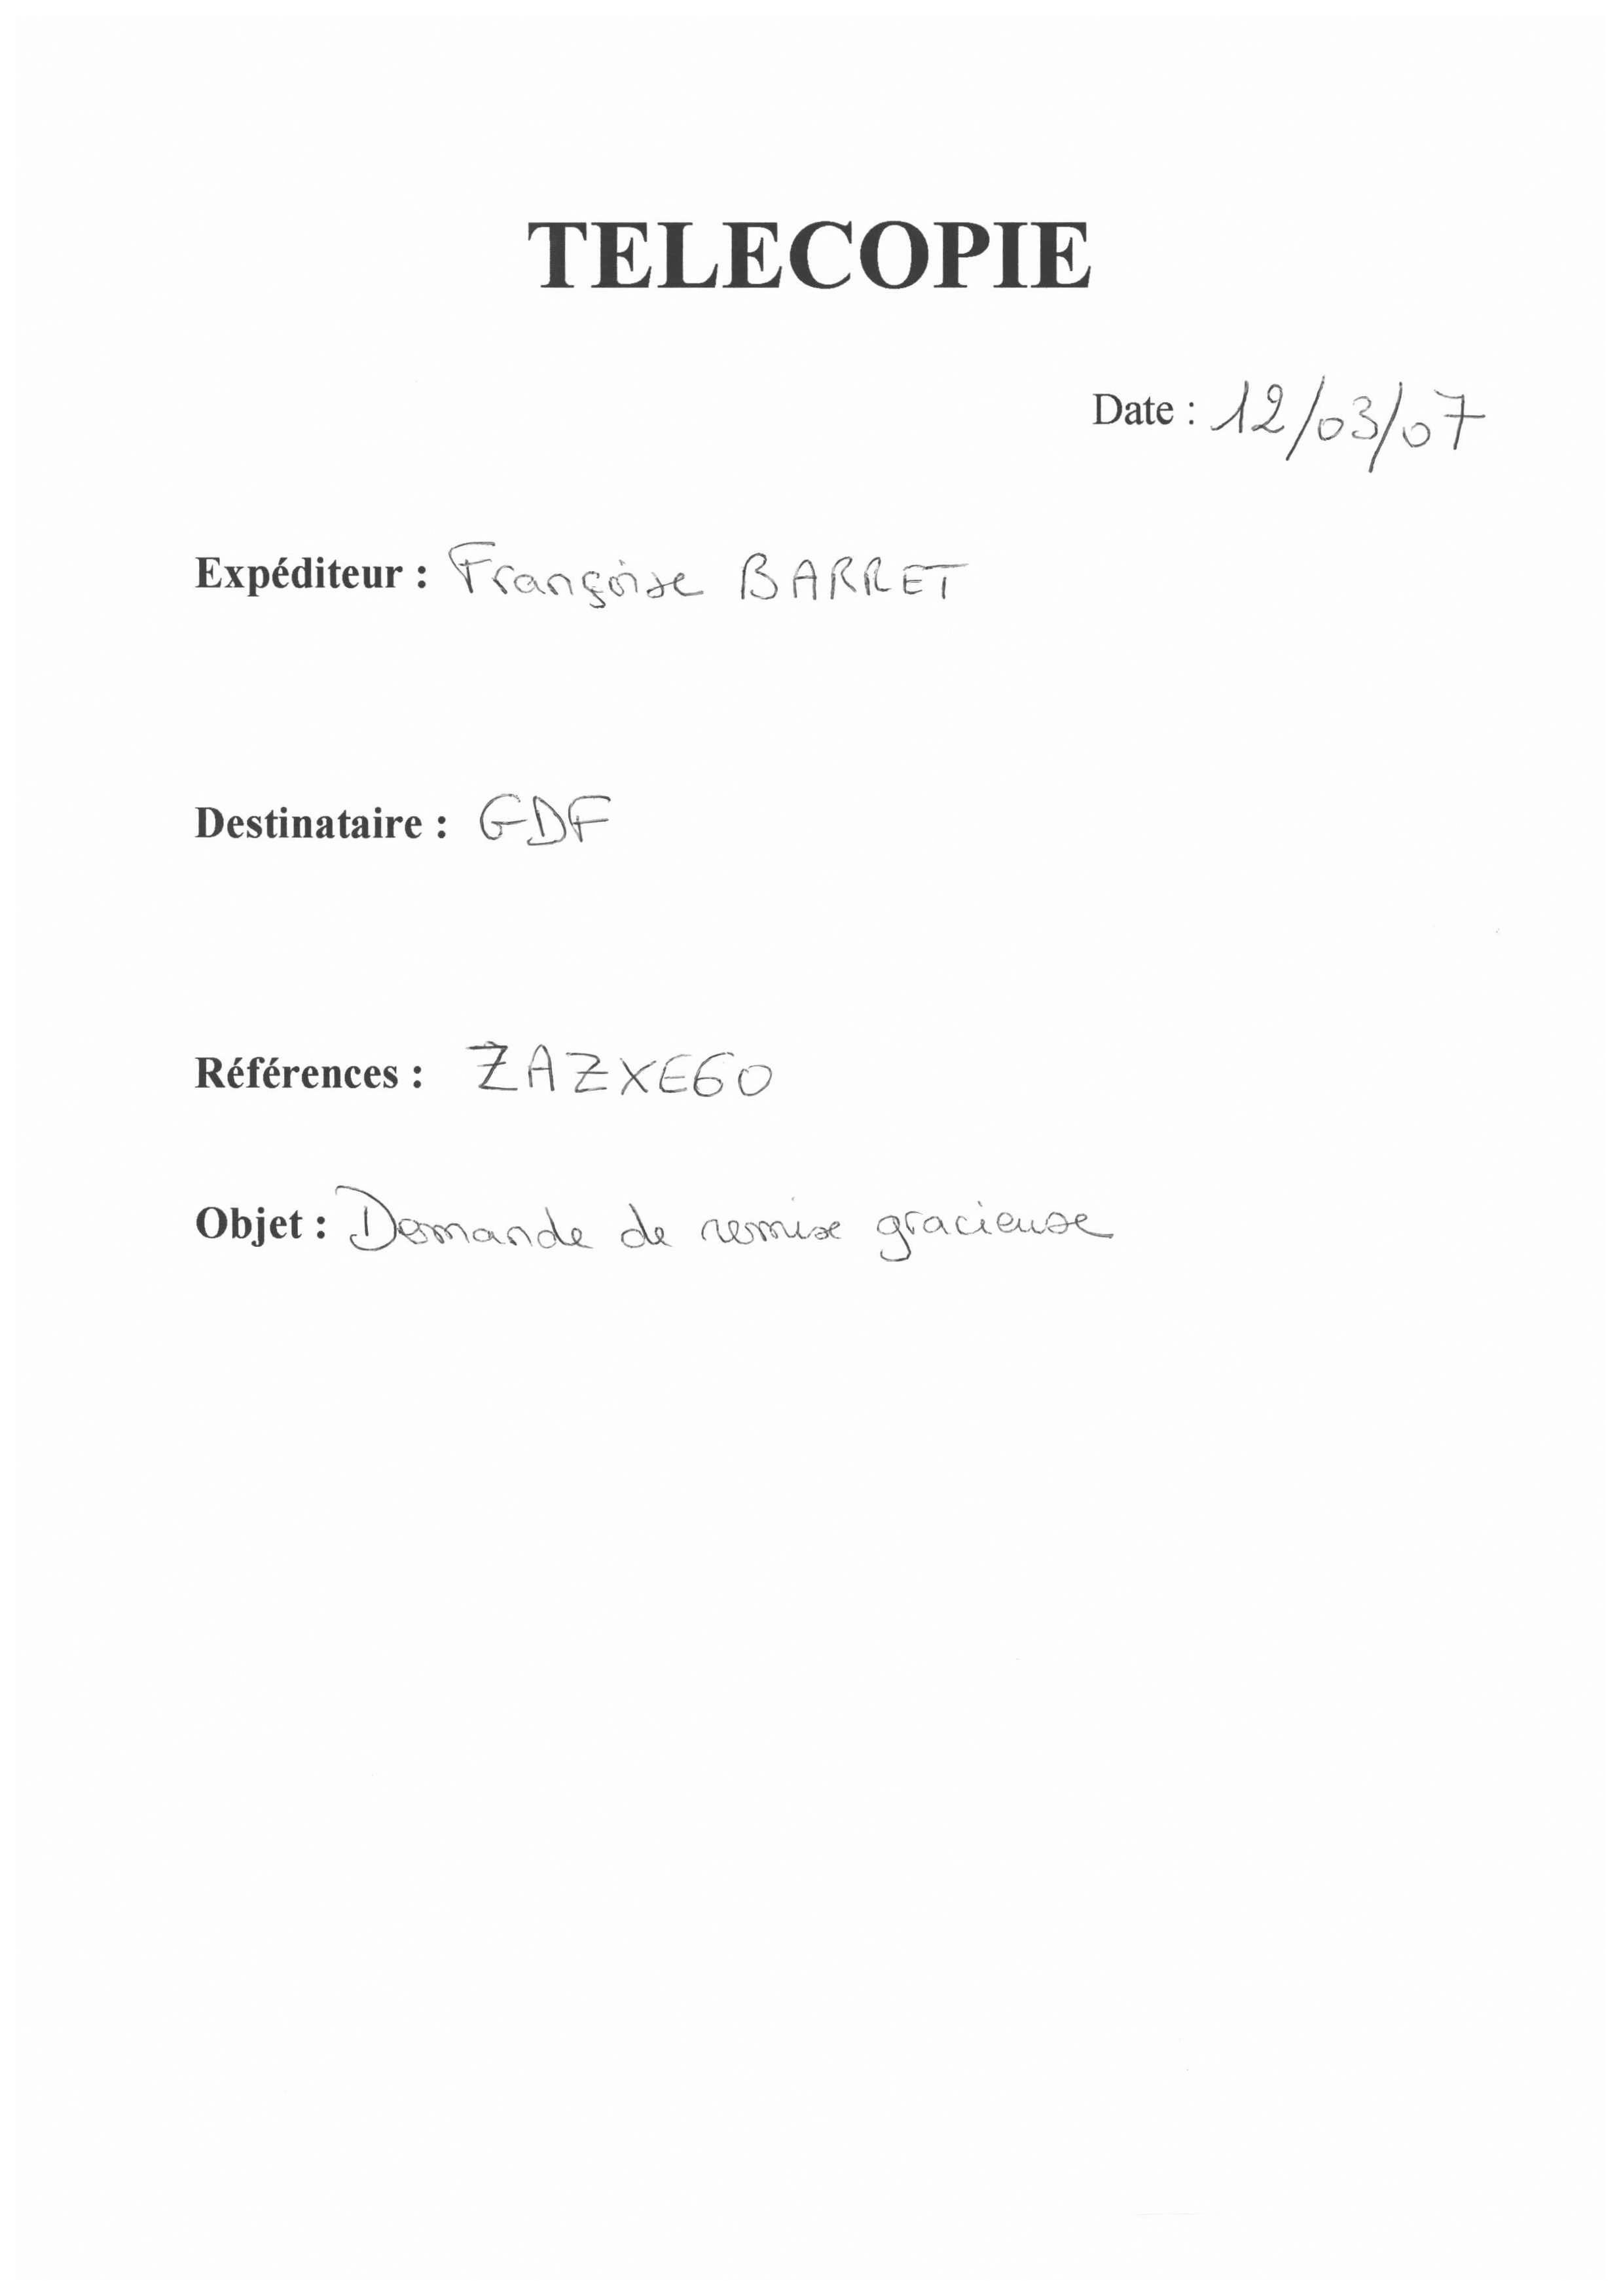 TELECOPIE
Date : 12/03/07
Expéditeur : Françoise BARRET
Destinataire : GDF
Références : ZAZXE60
Objet : Demande de remise gracieuse